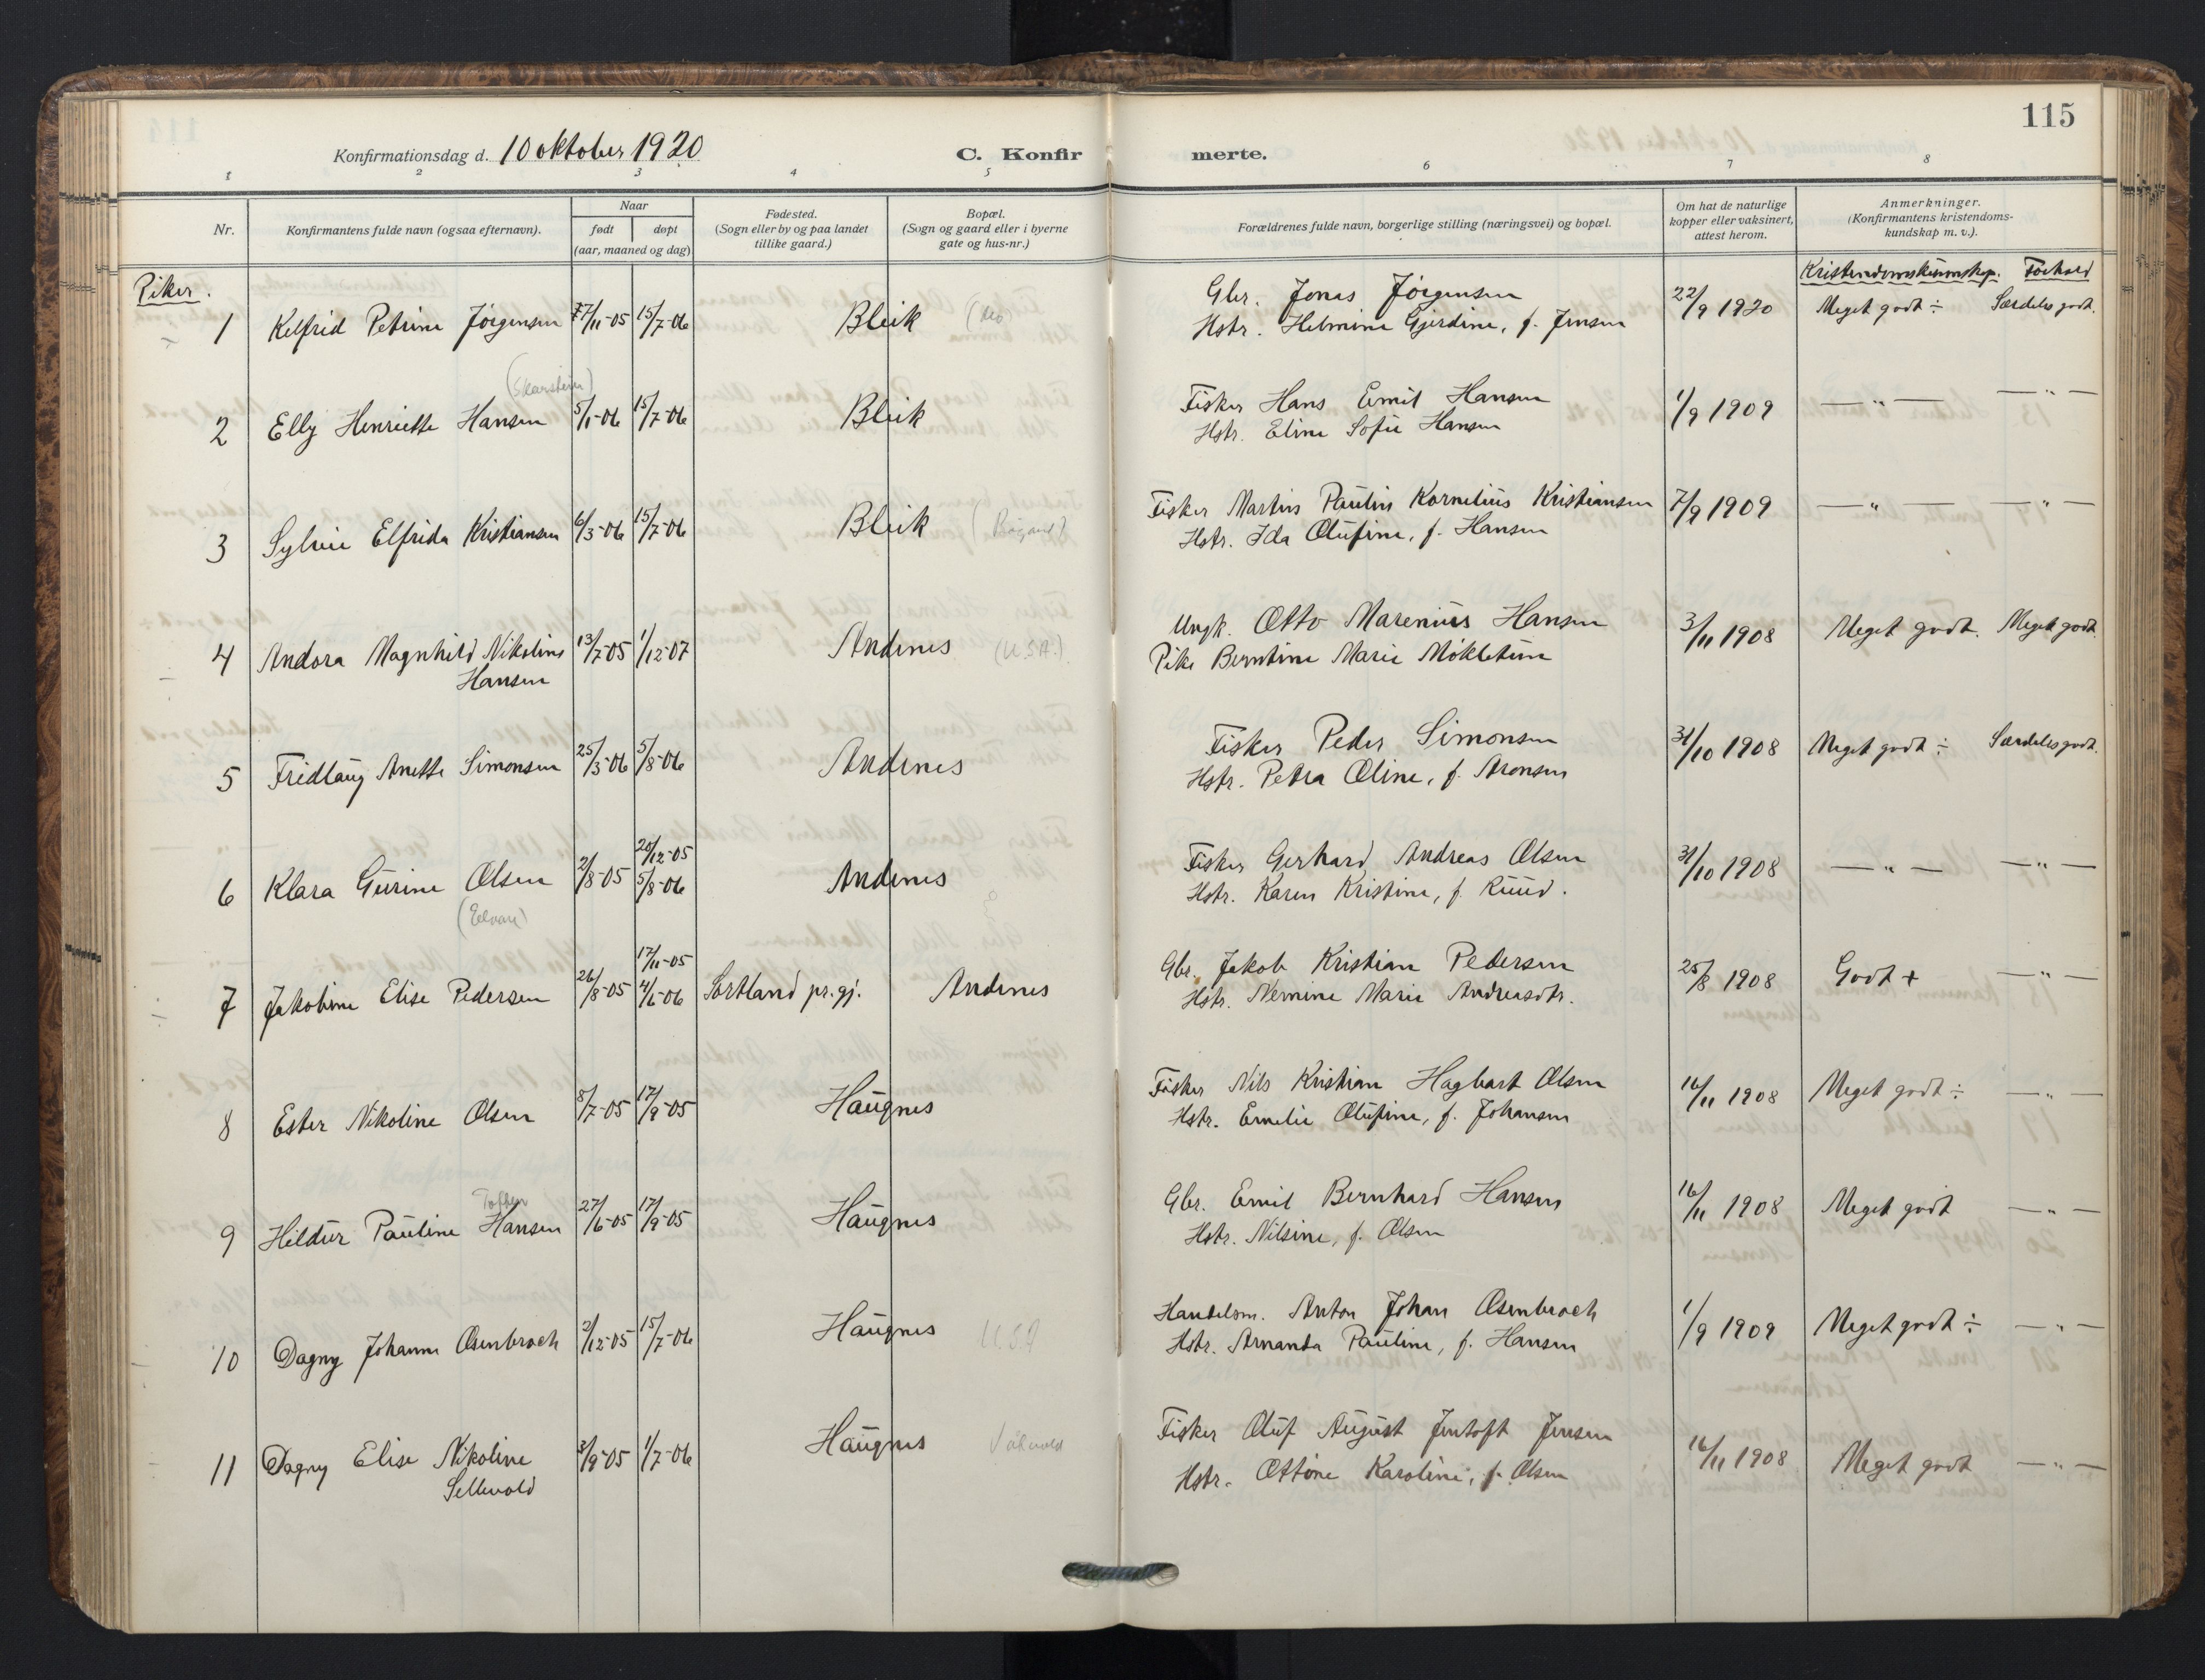 115
Konfirmationsdag d. 10 oktober 1920
C. Konfirmerte.
1 2 3 4 5 6 7 8
Nr.
Konfirmantens fulde navn (ogsaa efternavn).
Naar
født døpt
(aar, maaned og dag)
Fødested.
(Sogn eller by og paa landet
tillike gaard.)
Bopæl.
(Sogn og gaard eller i byerne
gate og hus-nr.)
Forældrenes fulde navn, borgerlige stilling (næringsvei) og bopæl.
Om hat de naturlige
kopper eller vaksinert,
attest herom.
Anmerkninger.
(Konfirmantens kristendoms-
kundskap m. v.).
Piker.
Kristendomskunnskap. Forhold
1 Kelfrid Petrine Jörgensen 27/11-05 15/7-06 Bleik
Gbr. Jonas Jörgensen
Hstr. Helmine Gjerdine, f. Jensen
22/9 1920 Meget godt ÷ Særdeles godt.
(Skarstein)
2 Elly Henriette Hansen 5/1-06 15/7-06 Bleik
Fisker Hans Emil Hansen
Hstr. Eline Sofie Hansen
1/9 1909 — " — — " —
3 Sylvie Elfrida Kristiansen 6/3-06 15/7-06 Bleik
Fisker Martin Paulin Kornelius Kristiansen
Hstr. Ida Olufine, f. Hansen
7/9 1909 — " — — " —
4 Andora Magnhild Nikoline
Hansen
13/7-05 1/12-07 Andenes (U.S.A.)
Ungk. Otto Marenius Hansen
Pike Berntine Marie Mökletun
3/11 1908 Meget godt. Meget godt.
5 Fridlaug Anette Simonsen 25/3-06 5/8-06 Andenes
Fisker Peder Simonsen
Hstr. Petra Oline, f. Aronsen
31/10 1908 Meget godt ÷ Særdeles godt.
6 Klara Gurine Olsen 2/8-05 20/12-05
5/8-06 Andenes
Fisker Gerhard Andreas Olsen
Hstr. Karen Kristine, f. Ruud.
31/10 1908 — " — — " —
7 Jakobine Elise Pedersen 26/8-05 17/11-05
4/5-06 Sortland pr.gj. Andenes
Gbr. Jakob Kristian Pedersen
Hstr. Nernine Marie Andreasdtr.
25/8 1908 Godt + — " —
8 Ester Nikoline Olsen 8/7-05 17/9-05 Haugnes
Fisker Nils Kristian Hagbart Olsen
Hstr. Emelie Olufine, f. Johansen
16/11 1908 Meget godt ÷ — " —
Toften
9 Hildur Pauline Hansen 27/6-05 17/9-05 Haugnes
Gbr. Emil Bernhard Hansen
Hstr. Nilsine, f. Olsen
16/11 1908 Meget godt — " —
10 Dagny Johanne Osenbroch 2/12-05 15/7-06 Haugnes USA
Handelsm. Anton Johan Osenbroch
Hstr. Amanda Pauline, f. Hansen
1/9 1909 Meget godt ÷ — " —
11 Dagny Elise Nikoline
Sellevold
3/9-05 1/7-06 Haugnes
Fisker Oluf August Jentoft Jensen
Hstr. Ottine Karoline, f. Olsen
16/11 1908 Meget godt — " —